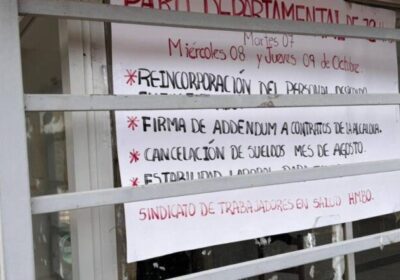 PARO DEPARTAMENTAL DE 72
Martes 07
Miércoles 08 y Jueves 09 de Octubre.
* REINCORPORACIÓN DEL PERSONAL
* FIRMA DE ADDENDUM A CONTRATOS DE LA ALCALDIA.
* CANCELACIÓN DE SUELDOS MES DE AGOSTO.
* ESTABILIDAD LABORAL
SINDICATO DE TRABAJADORES EN SALUD HMBO.